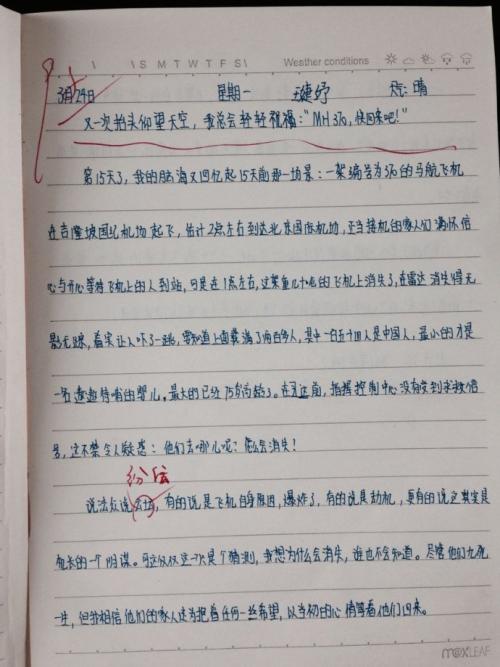 \ \S M T W T F S\ Weather conditions
3月24日 星期一 天气:晴
又一次抬头仰望天空,我总会轻轻祝福:"MH370,快回来吧!"
第15天了,我的脑海又回忆起15天前那一场景:一架编号为370的马航飞机
在吉隆坡国际机场起飞,估计2点左右到达北京国际机场,正当接机的家人们满怀信
心与开心等待飞机上的人到站,可是在1点左右,这架重几十吨的飞机上消失了,在雷达消失得无
影无踪,着实让人吓了一跳,要知道上面载满了两百多人,其中一百五十四人是中国人,最小的才是
一名嗷嗷待哺的婴儿,最大的已经75岁高龄了。在这前,指挥控制中心没有受到求救信
号,这不禁令人疑惑:他们去哪儿呢?怎么会消失!
纷纭
说法众说云坛,有的说是飞机自身原因,爆炸了,有的说是劫机,更有的说这其实是
的一个阴谋。可这仅仅是一个猜测,我想为什么会消失,谁也不会知道。尽管他们九死
一生,但我相信他们的家人还为抱着任何一丝希望,以当初的心情等着他们回来。
m@XLEAF